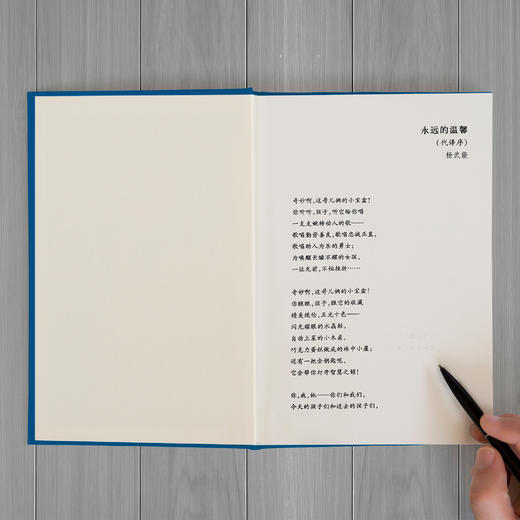 永远的温馨
(代译序)
杨武能
奇妙啊,这哥儿俩的小宝盒!
你听听,孩子,听它给你唱
一支支婉转动人的歌——
歌唱勤劳善良,歌唱忠诚正直,
歌唱助人为乐的勇士;
为唤醒长睡不醒的女孩,
一往无前,不怕挫折……
奇妙啊,这哥儿俩的小宝盒!
你瞧瞧,孩子,瞧它的收藏
精美绝伦,五光十色——
闪光耀眼的水晶鞋,
自动上菜的小木桌,
巧克力蛋糕做成的林中小屋;
还有一把金钥匙呢,
它会帮你打开智慧之锁!
你,我,他——你们和我们,
今天的孩子们和过去的孩子们,